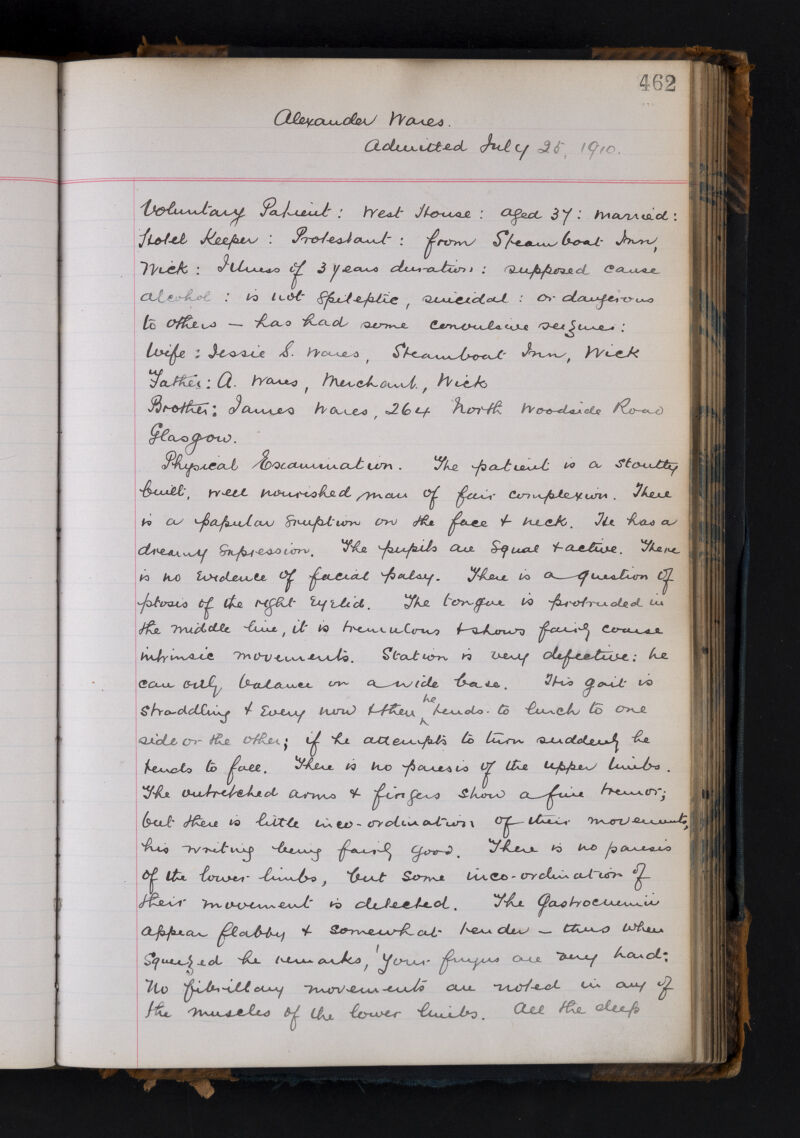 462
Alexander Wares.
Admitted July 25, 1910.
Voluntary Patient : West House : aged 37 : married :
Hotel Keeper : Protestant : from Steamboat Inn,
Wick : Illness of 3 years duration : supposed cause
alcohol : is not Epileptic, suicidal : or dangerous
to others – has had some convulsive seizures :
Wife : Jessie S. Wares, Steamboat Inn, Wick
Father : A. Wares, Merchant, Wick
Brother : James Wares, 264 North Woodside Road
Glasgow.
Physical Examination. The patient is a stoutly
built, well nourished man of fair complexion. There
is a papular Eruption on the face & neck. He has a
dreamy Expression. The pupils are Equal & active. There
is no Evidence of facial palsy. There is a question of
ptosis of the right Eyelid. The tongue is protruded in
the middle line, it is tremulous & shows fairly coarse
intrinsic movements. Station is very defective : he
can only balance on a wide base. His gait is
straddling & Every now & then he tends to lurch to one
side or the other; if he attempts to turn suddenly he
tends to fall. There is no paresis of the upper limbs.
The outretched arms & fingers show a fine tremor;
but there is little inco-ordination of their movements,
his writing being fairly good. There is no paresis
of the lower limbs, but some inco-ordination of
their movement is detected. The Gastrocnemii
appear flabby & somewhat tender – thus when
squeezed he remarks, 'your fingers are very hard:
No fibrillary movements are noted in any of
the muscles of the lower limbs. All the deep